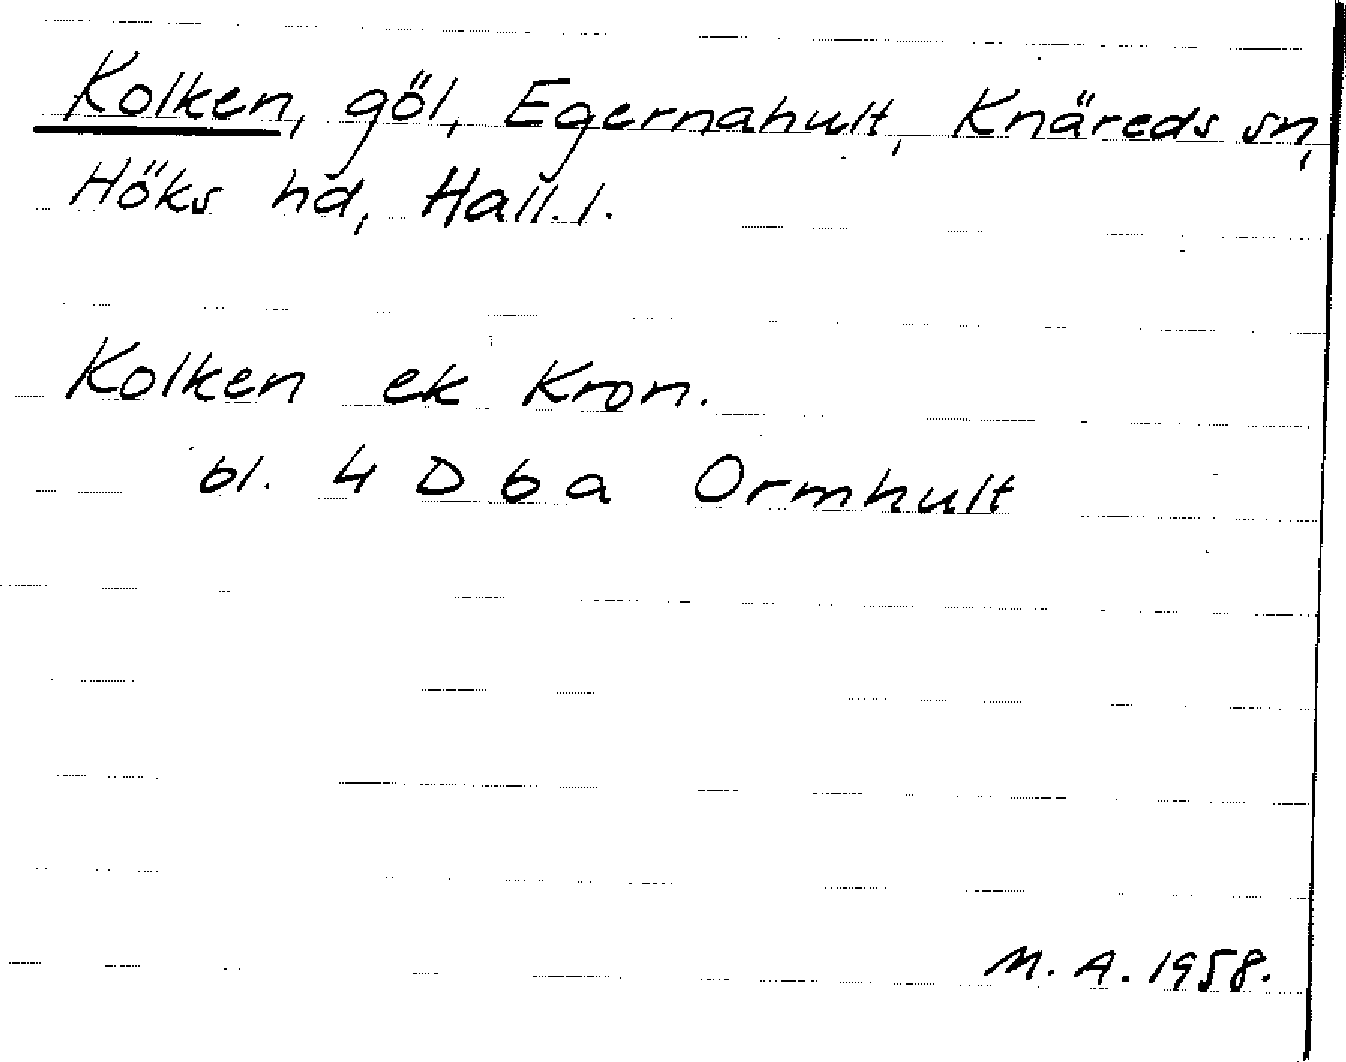 Kolken, göl, Egernahult, Knäreds sn,
Höks hd, Hall. l.
Kolken ek Kron.
bl. 4 D b a Ormhult
M. A. 1958.